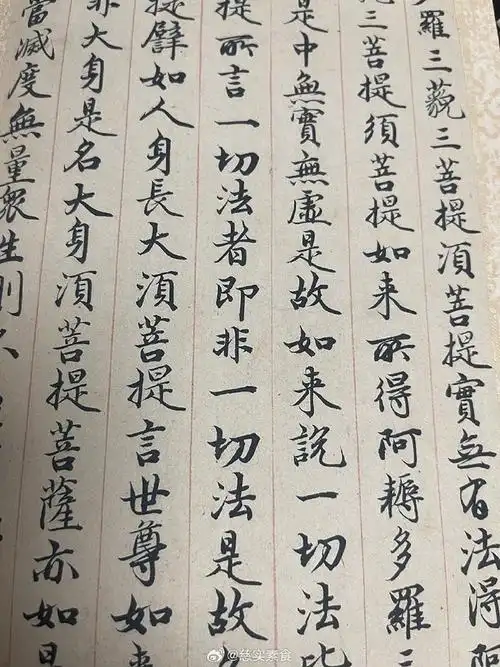 羅三藐三菩提湏菩提實無有法得
三菩提須菩提如来所得阿耨多羅三
是中無實無虛是故如来說一切法皆
提所言一切法者即非一切法是故
提譬如人身長大湏菩提言世尊如来
非大身是名大身湏菩提菩薩亦如是
當滅度無量眾生則不
@慈实素食